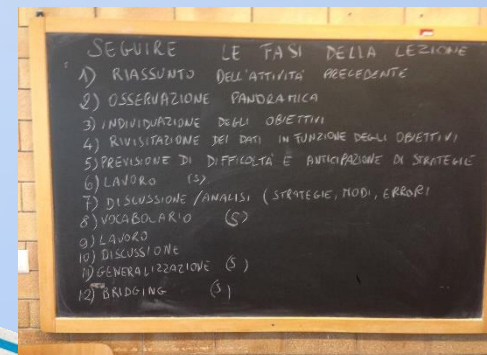 SEGUIRE LE FASI DELLA LEZIONE
1) RIASSUNTO DELL'ATTIVITÀ PRECEDENTE
2) OSSERVAZIONE PANORAMICA
3) INDIVIDUAZIONE DEGLI OBIETTIVI
4) RIVISITAZIONE DEI DATI IN FUNZIONE DEGLI OBIETTIVI
5) PREVISIONE DI DIFFICOLTÀ E ANTICIPAZIONE DI STRATEGIE
6) LAVORO (S)
7) DISCUSSIONE / ANALISI ( STRATEGIE, MODI, ERRORI
8) VOCABOLARIO (S)
9) LAVORO
10) DISCUSSIONE
11) GENERALIZZAZIONE (S)
12) BRIDGING (S)